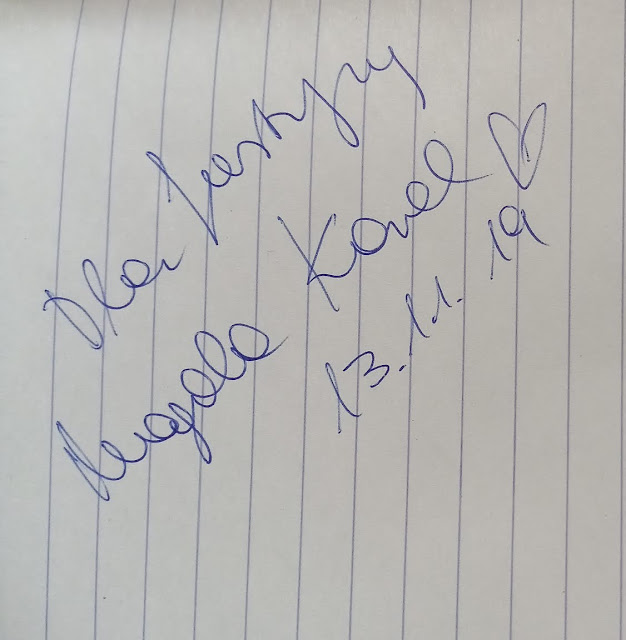 Dla Justyny
Magda Karel ♡
13.11.19